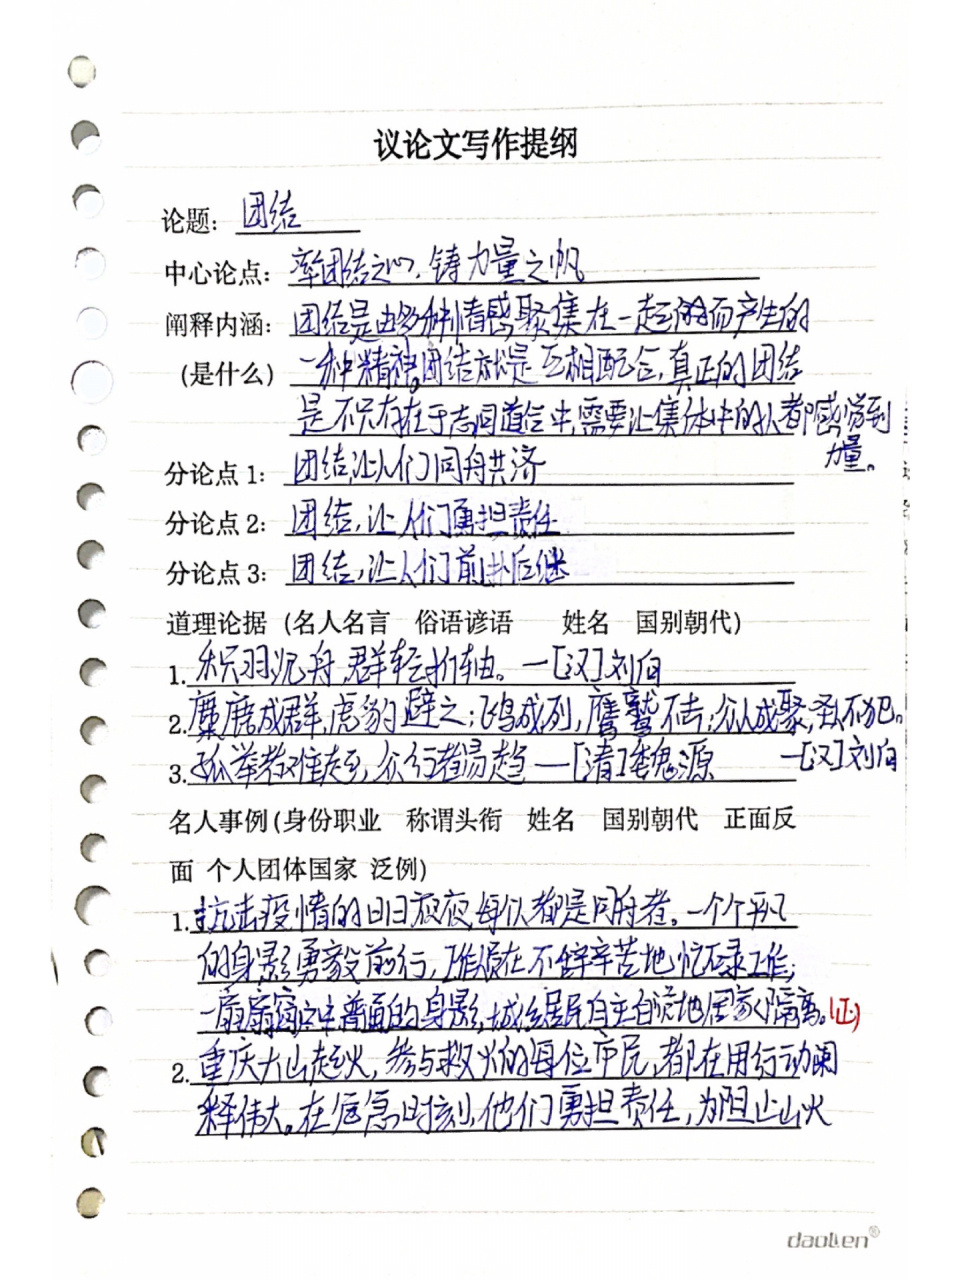 议论文写作提纲
论题：团结
中心论点：率团结之心，铸力量之帆
阐释内涵：团结是由多种情感聚集在一起而产生的
（是什么）一种精神。团结就是互相配合，真正的团结
是不只存在于志同道合中，需要让集体中的人都感觉到
力量。
分论点1：团结让人们同舟共济
分论点2：团结，让人们勇担责任
分论点3：团结，让人们前扑后继
道理论据（名人名言 俗语谚语 姓名 国别朝代）
1. 积羽沉舟，群轻折轴。—[汉]刘向
2. 麋鹿成群，虎豹避之；飞鸟成列，鹰鹫不击；众人成聚，圣人不犯。
—[汉]刘向
3. 孤举者难起，众行者易趋—[清]魏源
名人事例（身份职业 称谓头衔 姓名 国别朝代 正面反
面 个人团体国家 泛例）
1. 抗击疫情的日日夜夜，每个人都是同舟者。一个个平凡
的身影勇毅前行，工作在不辞辛苦地忙碌工作；
一扇扇窗户中普通的身影，城乡居民自主自觉地居家隔离。(正)
2. 重庆大山起火，参与救火的每位市民，都在用行动阐
释伟大。在危急时刻，他们勇担责任，为阻止山火
daolien®